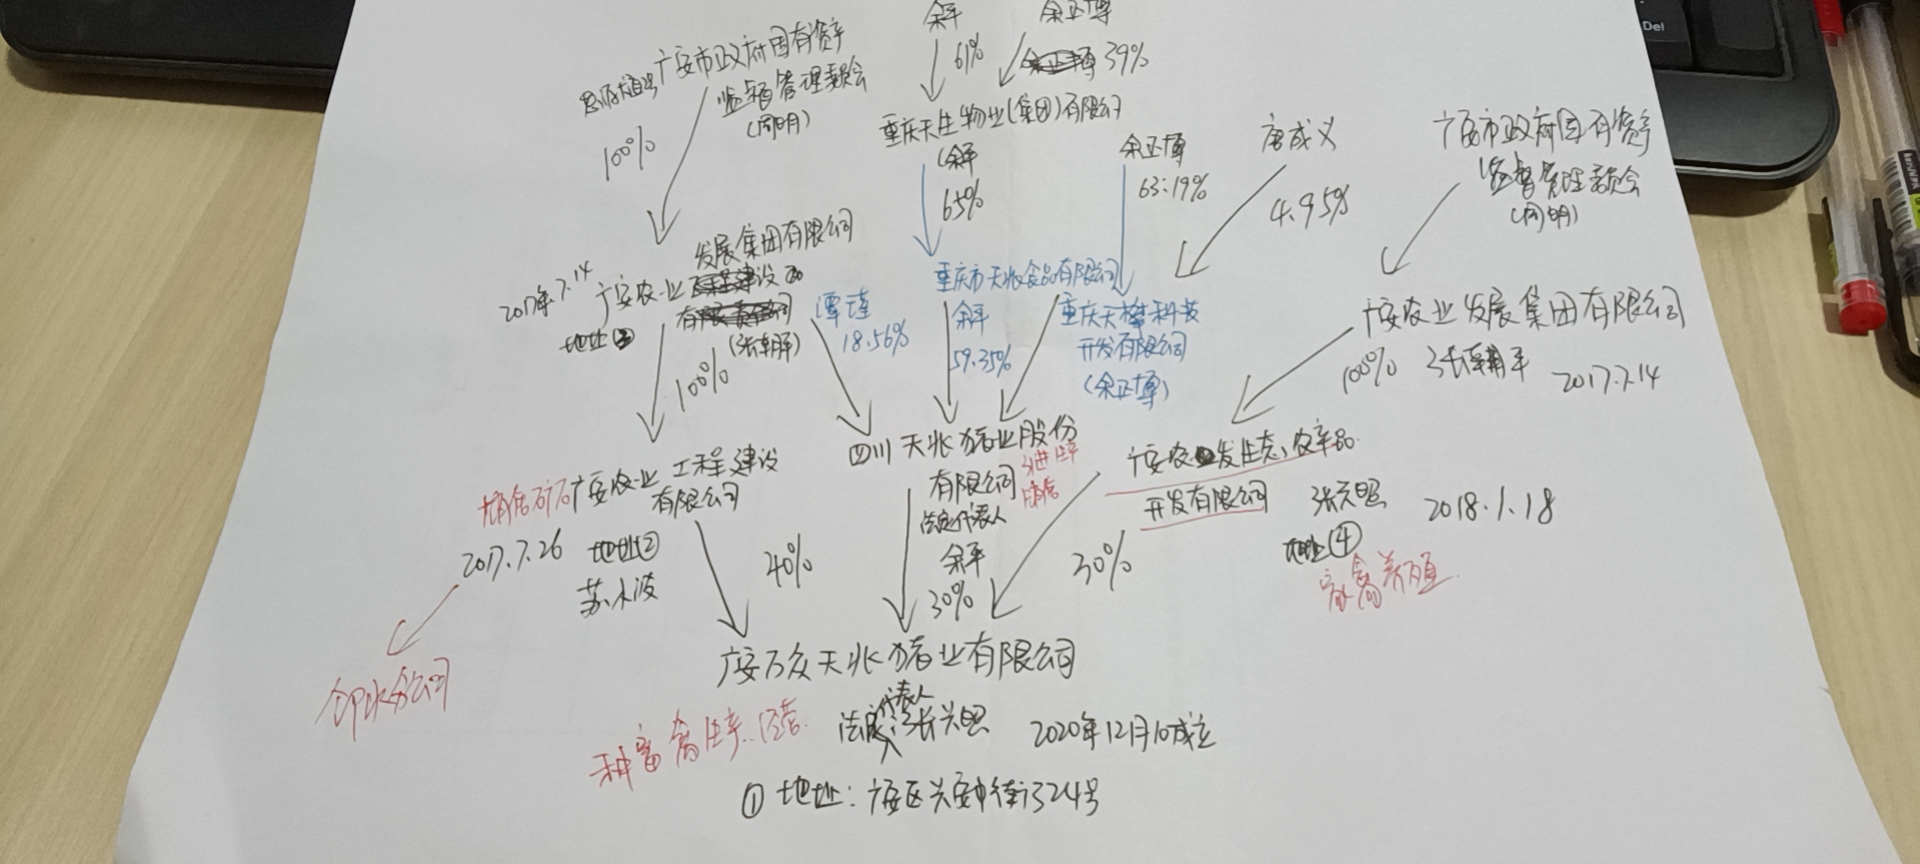 余平
余正博
61%
39%
广安市政府国有资产
监督管理委员会
(周明)
100%
重庆天生物业(集团)有限公司
(余平
65%
余正博
63.19%
唐成义
4.95%
广安市政府国有资产
监督管理委员会
(周明)
发展集团有限公司
2017年7.14
广安农业
地址③
100%
谭瑾
18.56%
重庆市天兆食品有限公司
余平
59.35%
重庆天楙科技
开发有限公司
(余正博)
广安农业发展集团有限公司
100%
2017.7.14
四川天兆猪业股份
有限公司
法定代表人
余平
30%
广安农业工程建设
有限公司
2017.7.26
地址②
苏小波
40%
广安农发生态农产品
开发有限公司
张兴照
2018.1.18
地址④
家禽养殖
30%
广安万众天兆猪业有限公司
种畜禽生产.经营.
代表人
张兴照
2020年12月10成立
①地址:广安区兴安中街324号
Del